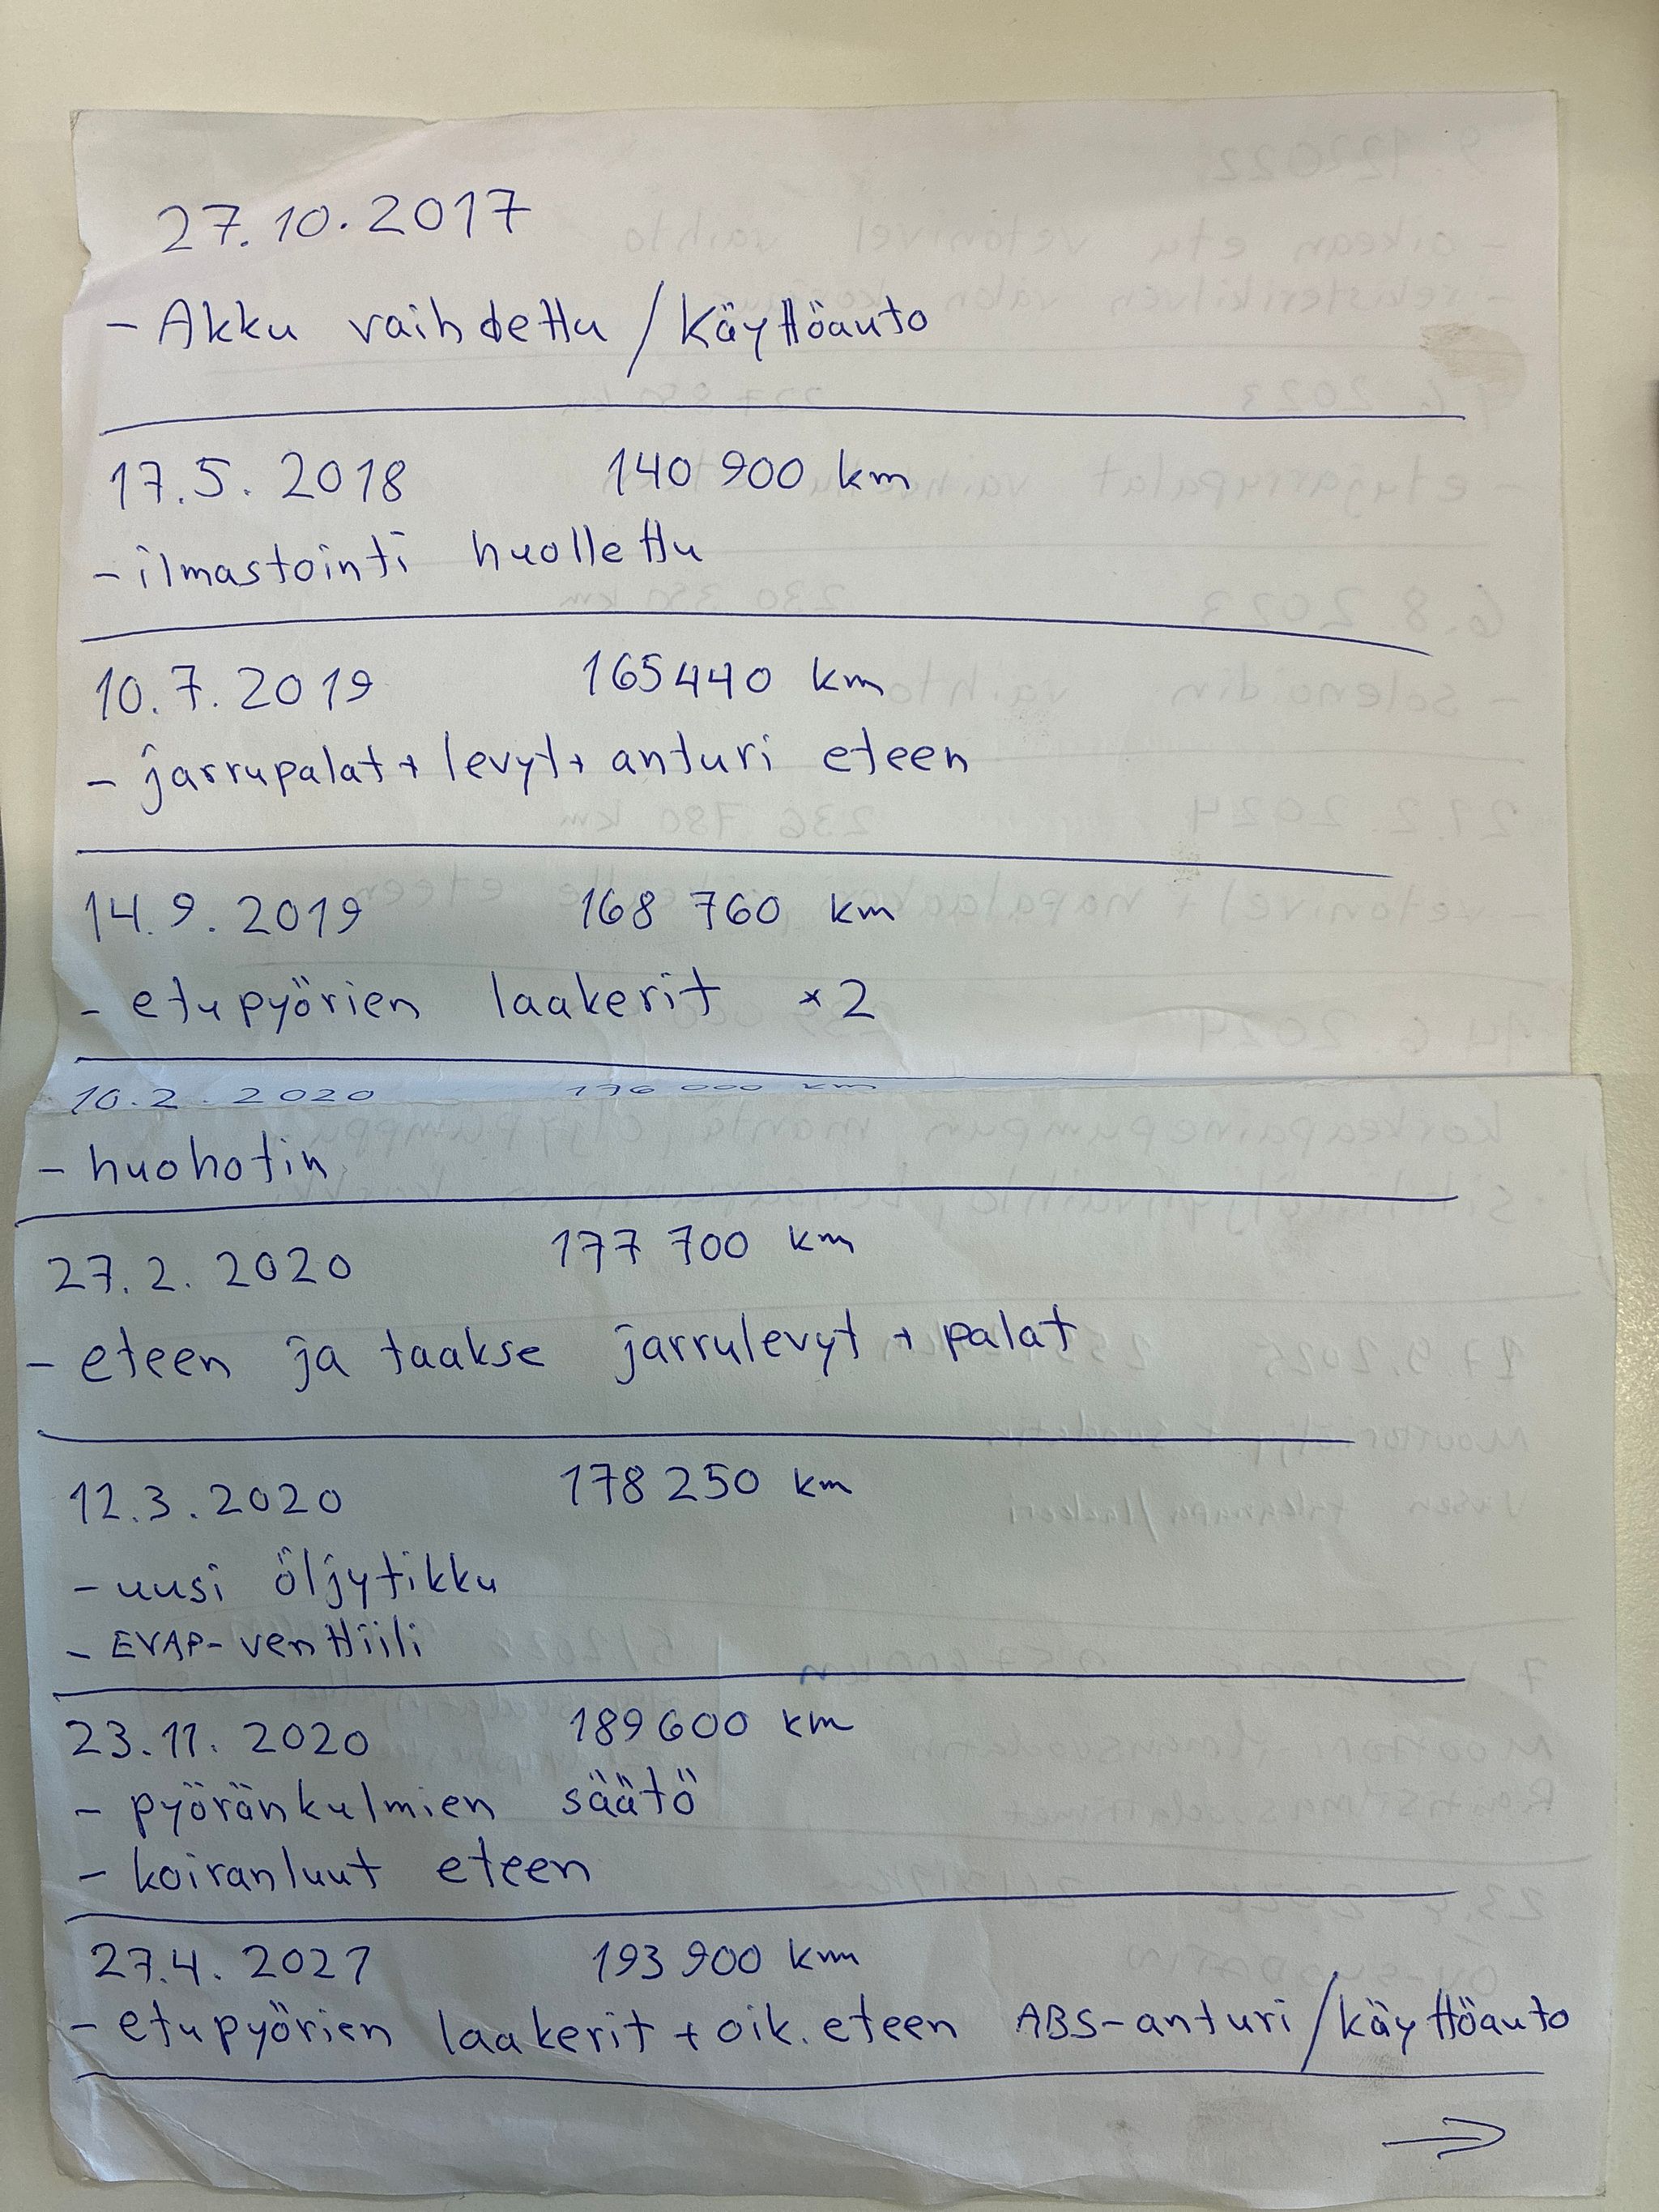 27.10.2017
- Akku vaihdettu / Käyttöauto
17.5. 2018 140 900 km
- ilmastointi huollettu
10.7. 2019 165440 km
- jarrupalat + levyt + anturi eteen
14.9. 2019 168 760 km
- etupyörien laakerit x2
10.2. 2020 176 000 km
- huohotin
27.2. 2020 177 700 km
- eteen ja taakse jarrulevyt + palat
12.3.2020 178 250 km
- uusi öljytikku
- EVAP-venttiili
23.11. 2020 189600 km
- pyöränkulmien säätö
- koiranluut eteen
27.4. 2021 193 900 km
- etupyörien laakerit + oik. eteen ABS-anturi / käyttöauto
→